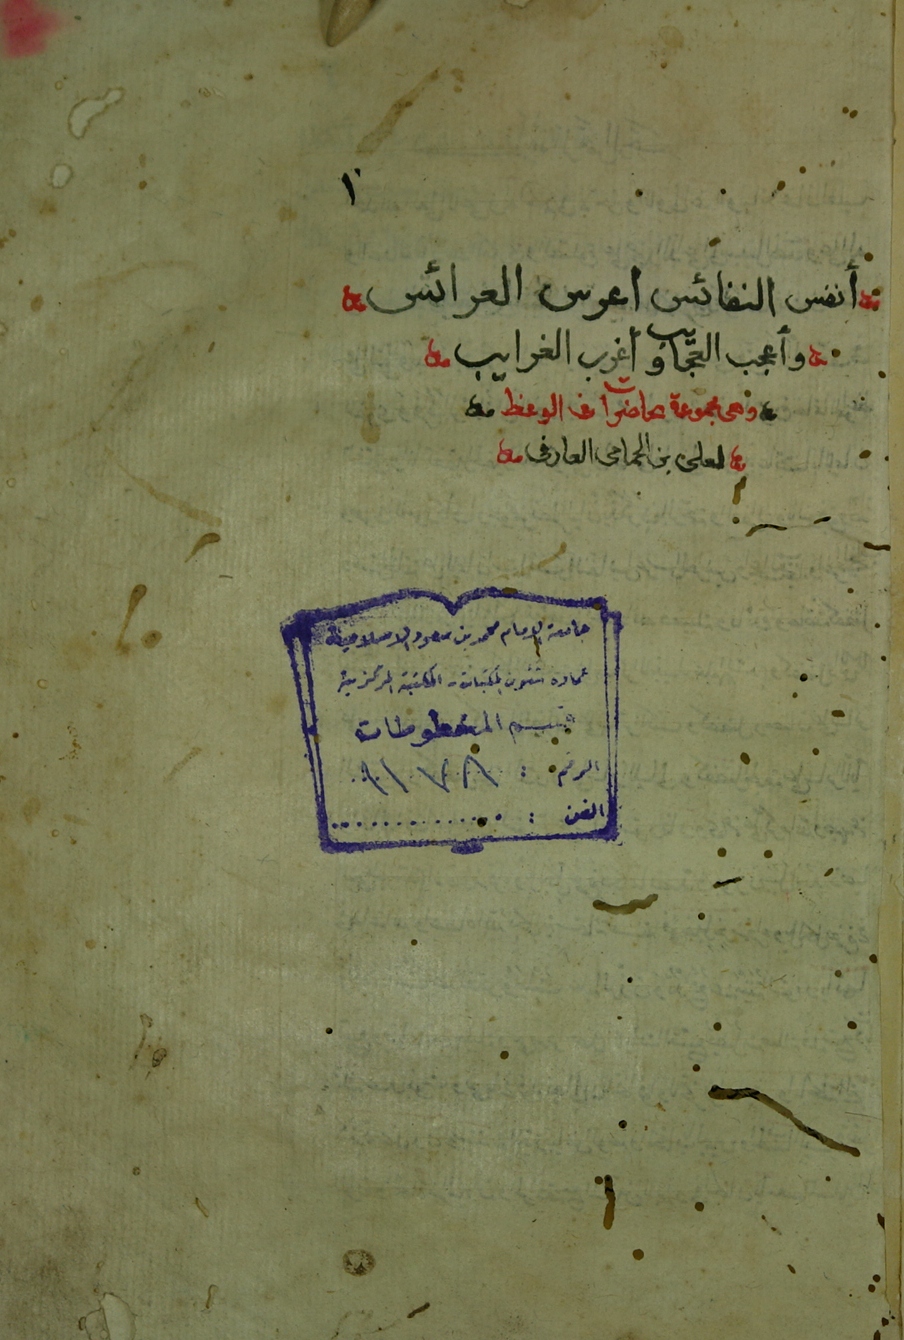 ١
أنفس النفائس اعرس العرائس
وأعجب العجايب و أغرب الغرايب
وهى مجموعة محاضرات فى الوعظ
لعلى بن الحمامى العارفى
جامعة الإمام محمد بن سعود الإسلامية
عمادة شئون المكتبات - المكتبة المركزية
قسم المخطوطات
الرقم :
الفن : ............